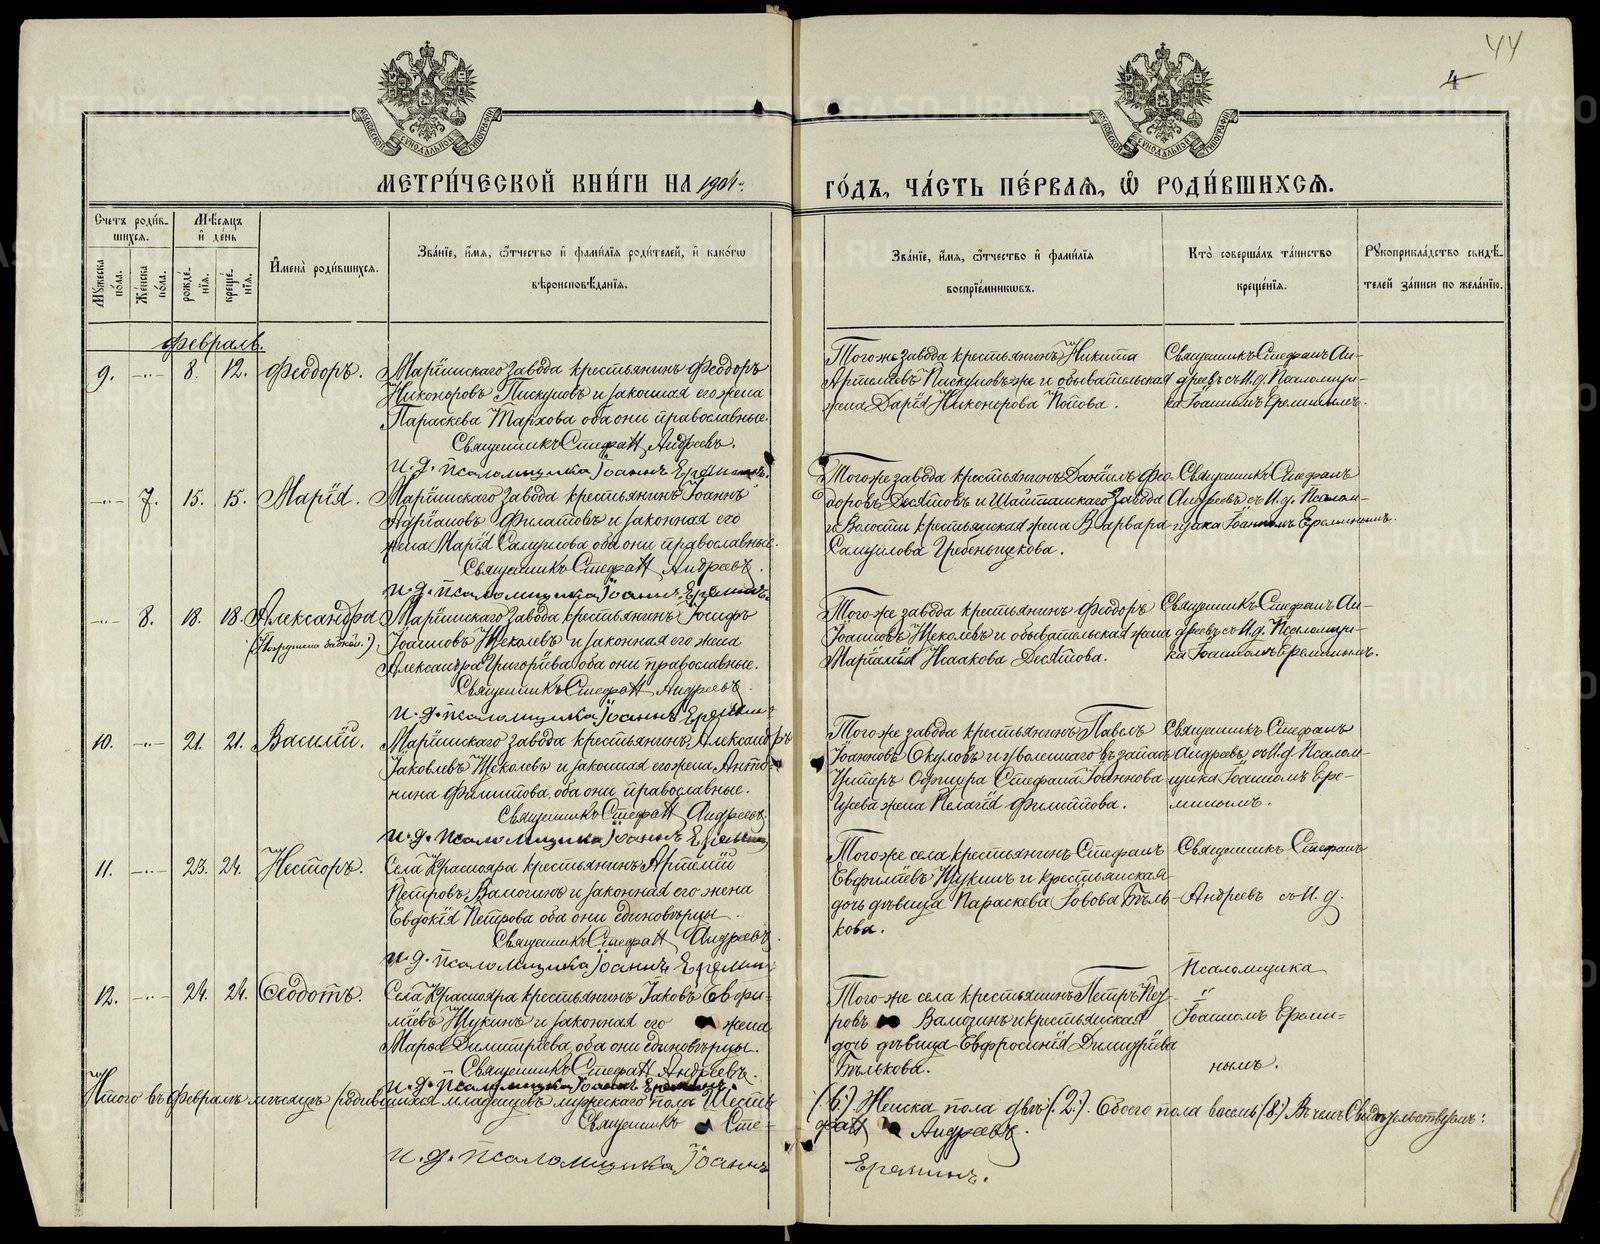 44
4
МЕТРИ́ЧЕСКОЙ КНИ́ГИ НА 1904 ГО́ДЪ, ЧА́СТЬ ПЕ́РВАЯ, Ѽ РОДИ́ВШИХСЯ.
Счетъ роди́в-
шихся.
Мѣсяцъ
и҆ де́нь
Мꙋ́жеска по́ла.
Же́нска по́ла.
рожде́-
нїя.
креще́-
нїя.
И҆мена̀ роди́вшихся.
Зва́нїе, и҆́мя, ѻ҆́тчество и҆ фами́лїя роди́телей, и҆ како́гѡ
вѣроисповѣ́данїя.
Зва́нїе, и҆́мя, ѻ҆́тчество и҆ фами́лїя
воспрїе́мникѡвъ.
Кто̀ соверша́лъ та́инство
креще́нїя.
Рꙋкоприкла́дство свидѣ́-
телей за́писи по жела́нїю.
Февраль.
9. -"- 8. 12. Ѳеодоръ.
Маріинскаго завода крестьянинъ Ѳеодоръ
Никоноровъ Пискуновъ и законная его жена
Параскева Тархова оба они православные.
Священникъ Стефанъ Андреевъ.
И. д. псаломщика Іоаннъ Ереминъ.
Того же завода крестьянинъ Никита
Артемьевъ Пискуновъ же и обывательская
жена Дарія Никонорова Попова.
Священникъ Стефанъ Ан-
дреевъ съ И. д. Псаломщи-
ка Іоанномъ Ереминымъ.
-"- 7. 15. 15. Марія.
Маріинскаго завода крестьянинъ Іоаннъ
Адріановъ Филатовъ и законная его
жена Марія Самуилова оба они православные.
Священникъ Стефанъ Андреевъ.
И. д. псаломщика Іоаннъ Ереминъ.
Того же завода крестьянинъ Даніилъ Ѳео-
доровъ Десятовъ и Шайтанскаго завода
и Волости крестьянская жена Варвара
Самуилова Гребеньщекова.
Священникъ Стефанъ
Андреевъ съ И. д. Псалом-
щика Іоанномъ Ереминымъ.
-"- 8. 18. 18. Александра
(Погружена бабкой.)
Маріинскаго завода крестьянинъ Іосифъ
Іоанновъ Щеколевъ и законная его жена
Александра Григорьева оба они православные.
Священникъ Стефанъ Андреевъ.
И. д. псаломщика Іоаннъ Ереминъ
Того же завода крестьянинъ Ѳеодоръ
Іоанновъ Щеколевъ и обывательская жена
Маріамія Исаакова Десятова.
Священникъ Стефанъ Ан-
дреевъ съ И. д. Псаломщи-
ка Іоанномъ Ереминымъ.
10. -"- 21. 21. Василій.
Маріинскаго завода крестьянинъ Александръ
Іаковлевъ Щеколевъ и законная его жена Анто-
нина Филиппова, оба они православные.
Священникъ Стефанъ Андреевъ.
И. д. Псаломщика Іоаннъ Ереминъ
Того же завода крестьянинъ Павелъ
Іоанновъ Окуловъ и уволеннаго въ запасъ
Унтеръ Офицера Стефана Іоаннова
жена Пелагія Филиппова.
Священникъ Стефанъ
Андреевъ съ И. д. Псалом-
щика Іоанномъ Ере-
минымъ.
11. -"- 23. 24. Несторъ.
Села Краснояра крестьянинъ Артемій
Петровъ Вамозинъ и законная его жена
Евдокія Петрова оба они единовѣрцы.
Священникъ Стефанъ Андреевъ.
И. д. псаломщика Іоаннъ Ереминъ
Того же села крестьянинъ Стефанъ
Евфиміевъ Щукинъ и крестьянская
дочь дѣвица Параскева Іовова Бѣль-
кова.
Священникъ Стефанъ
Андреевъ съ И. д.
Псаломщика
Іоанномъ Ереми-
нымъ.
12. -"- 24. 24. Ѳеодотъ.
Села Краснояра крестьянинъ Іаковъ Евфи-
міевъ Щукинъ и законная его жена
Марья Димитріева, оба они единовѣрцы.
Священникъ Стефанъ Андреевъ.
И. д. псаломщика Іоаннъ Ереминъ.
Того же села крестьянинъ Петръ
ровъ Вамозинъ и крестьянская
дочь дѣвица Евфросинія Димитріева
Бѣлькова.
Итого въ Февралѣ мѣсяцѣ родившихся младенцевъ мужескаго пола Шесть (6.) Женска пола двѣ (2.). Обоего пола восемь (8.) Въ чемъ Свидѣтельствуемъ:
Священникъ Стефанъ Андреевъ.
И. д. псаломщика Іоаннъ Ереминъ.